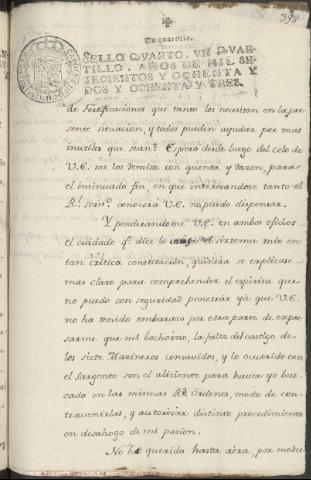 398
Un quartillo.
SELLO QVARTO, VN QVAR-
TILLO, AÑOS DE MIL SE-
TECIENTOS Y OCHENTA Y
DOS Y OCHENTA Y TRES.
de Fortificaciones que tanto las necesitan en la pre-
sente situacion, y todos pueden ayudar por mas
inutiles que sean? Espero desde luego del celo de
V.E. me los remita con quenta y razon, para
el insinuado fin, en que interesandose tanto el
Rl. Servo. conocerá V.E. no puedo dispensar.
Y ponderandome V.E. en ambos oficios
el cuidado qe. dice le el sistema mio en
tan critica constitucion, quisiera se explicase
mas claro para comprehender el espiritu que
no puedo con seguridad penetrar ya que V.E.
no ha tenido embarazo por otra parte de expre-
sarme que mi bochorno, la falta del castigo de
los siete Marineros consavidos, y lo ocurrido con
el Sargento son el aliciente para haver yo bus-
cado en las mismas Rs. Ordenes, modo de con-
travenirlas, y autorizar distinto procedimiento
en desahogo de mi pasion.
No he querido hasta aora, por modes-